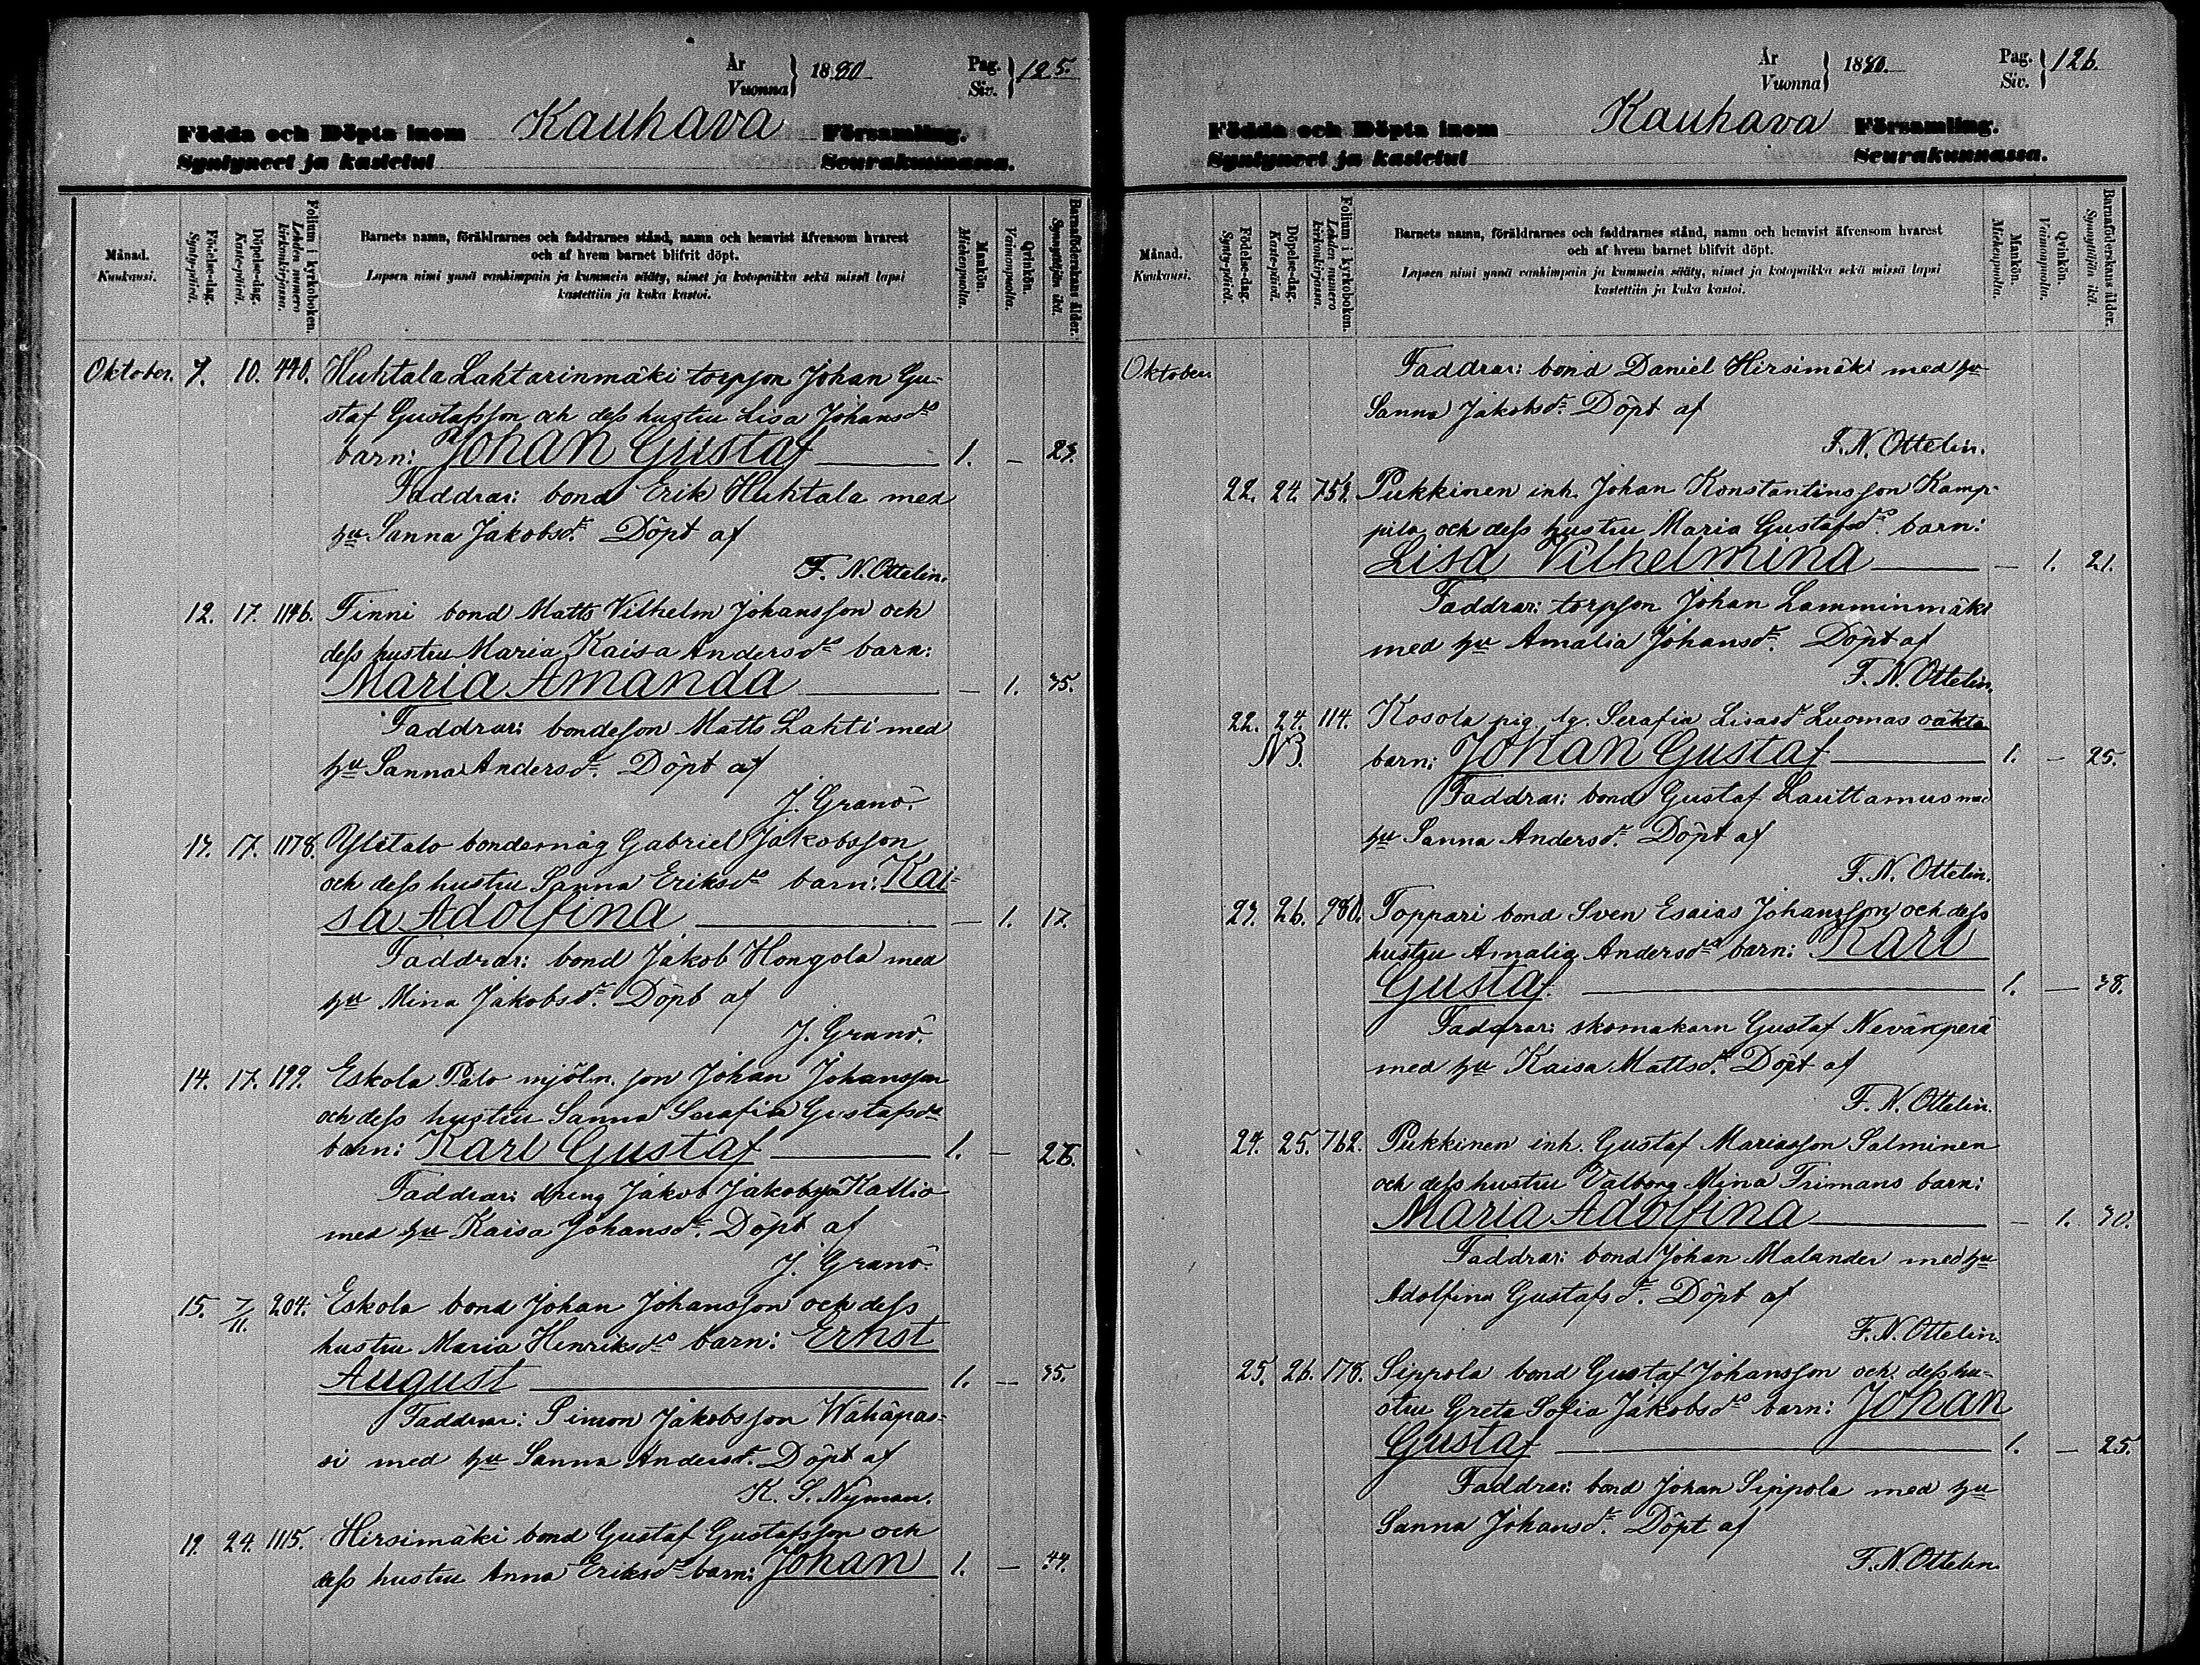 År
Vuonna } 1880
Pag.
Siv. } 125.
Födda och Döpta inom Kauhava Församling.
Syntyneet ja kastetut Seurakunnassa.
Månad.
Kuukausi.
Födelse-dag.
Synty-päivä.
Döpelse-dag.
Kaste-päivä.
Folium i kyrkoboken.
Lehden numero kirkonkirjassa.
Barnets namn, föräldrarnes och faddrarnes stånd, namn och hemvist äfvensom hvarest
och af hvem barnet blifvit döpt.
Lapsen nimi ynnä vanhimpain ja kummein sääty, nimet ja kotopaikka sekä missä lapsi
kastettiin ja kuka kastoi.
Mankön.
Miehenpuolta.
Qvinkön.
Vaimonpuolta.
Barnaföderskans ålder.
Synnyttäjän ikä.
Oktober. 7. 10. 440. Huhtala Lahtarinmäki torpson Johan Gu-
staf Gustafsson och dess hustru Lisa Johansdr
barn: Johan Gustaf 1. – 23.
Faddrar: bond Erik Huhtala med
hu Sanna Jakobsdr. Döpt af
F. N. Ottelin.
12. 17. 1146. Finni bond Matts Vilhelm Johansson och
dess hustru Maria Kaisa Andersdr barn:
Maria Amanda – 1. 35.
Faddrar: bondeson Matts Lahti med
hu Sanna Andersdr. Döpt af
J. Granö.
17. 1178. Ylitalo bondemåg Gabriel Jakobsson
och dess hustru Sanna Eriksdr barn: Kai-
sa Adolfina – 1. 17.
Faddrar: bond Jakob Hongola med
hu Mina Jakobsdr. Döpt af
J. Granö.
14. 17. 199. Eskola Palo mjöln. son Johan Johansson
och dess hustru Sanna Serafia Gustafsdr
barn: Karl Gustaf 1. – 26.
Faddrar: dreng Jakob Jakobsson Kallio
med hu Kaisa Johansdr. Döpt af
J. Granö.
15. 7/11. 204. Eskola bond Johan Johansson och dess
hustru Maria Henriksdr barn: Ernst
August 1. – 35.
Faddrar: Simon Jakobsson Wähäpas-
si med hu Sanna Andersdr. Döpt af
K. S. Nyman.
19. 24. 1115. Hirsimäki bond Gustaf Gustafsson och
dess hustru Anna Eriksdr barn: Johan 1. – 44.
År
Vuonna } 1880.
Pag.
Siv. } 126.
Födda och Döpta inom Kauhava Församling.
Syntyneet ja kastetut Seurakunnassa.
Månad.
Kuukausi.
Födelse-dag.
Synty-päivä.
Döpelse-dag.
Kaste-päivä.
Folium i kyrkoboken.
Lehden numero kirkonkirjassa.
Barnets namn, föräldrarnes och faddrarnes stånd, namn och hemvist äfvensom hvarest
och af hvem barnet blifvit döpt.
Lapsen nimi ynnä vanhimpain ja kummein sääty, nimet ja kotopaikka sekä missä lapsi
kastettiin ja kuka kastoi.
Mankön.
Miehenpuolta.
Qvinkön.
Vaimonpuolta.
Barnaföderskans ålder.
Synnyttäjän ikä.
Oktober. Faddrar: bond Daniel Hirsimäki med hu
Sanna Jakobsdr. Döpt af
F. N. Ottelin.
22. 24. Pukkinen inh. Johan Konstantinsson Kamp-
pila och dess hustru Maria Gustafsdr. barn:
Lisa Vilhelmina – 1. 21.
Faddrar: torpson Johan Lamminmäki
med hu Amalia Johansdr. Döpt af
F. N. Ottelin.
22. 24. 114. Kosola pig. Serafia Lisasdr Luomas oäkta
NB. barn: Johan Gustaf 1. – 25.
Faddrar: bond Gustaf Lauttamus med
hu Sanna Andersdr. Döpt af
F. N. Ottelin.
23. 26. 980. Toppari bond Sven Esaias Johansson och dess
hustru Amalia Andersdr barn: Karl
Gustaf. 1. – 38.
Faddrar: skomakarn Gustaf Nevanperä
med hu Kaisa Mattsdr. Döpt af
F. N. Ottelin.
24. 25. 762. Pukkinen inh. Gustaf Mariasson Salminen
och dess hustru Valborg Mina Frimans barn:
Maria Adolfina – 1. 30.
Faddrar: bond Johan Malander med hu
Adolfina Gustafsdr. Döpt af
F. N. Ottelin.
25. 26. 178. Sippola bond Gustaf Johansson och dess hu-
stru Greta Sofia Jakobsdr barn: Johan
Gustaf 1. – 25.
Faddrar: bond Johan Sippola med hu
Sanna Johansdr. Döpt af
F. N. Ottelin.